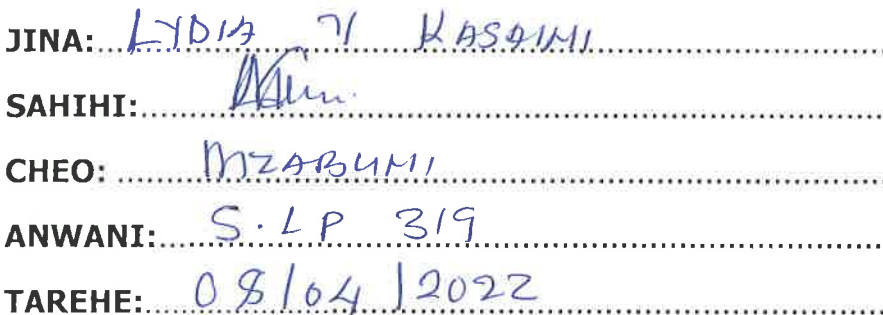 JINA: LYDIA Y KASAIMI
SAHIHI:
CHEO: MZABUNI
ANWANI: S.LP 319
TAREHE: 08/04/2022